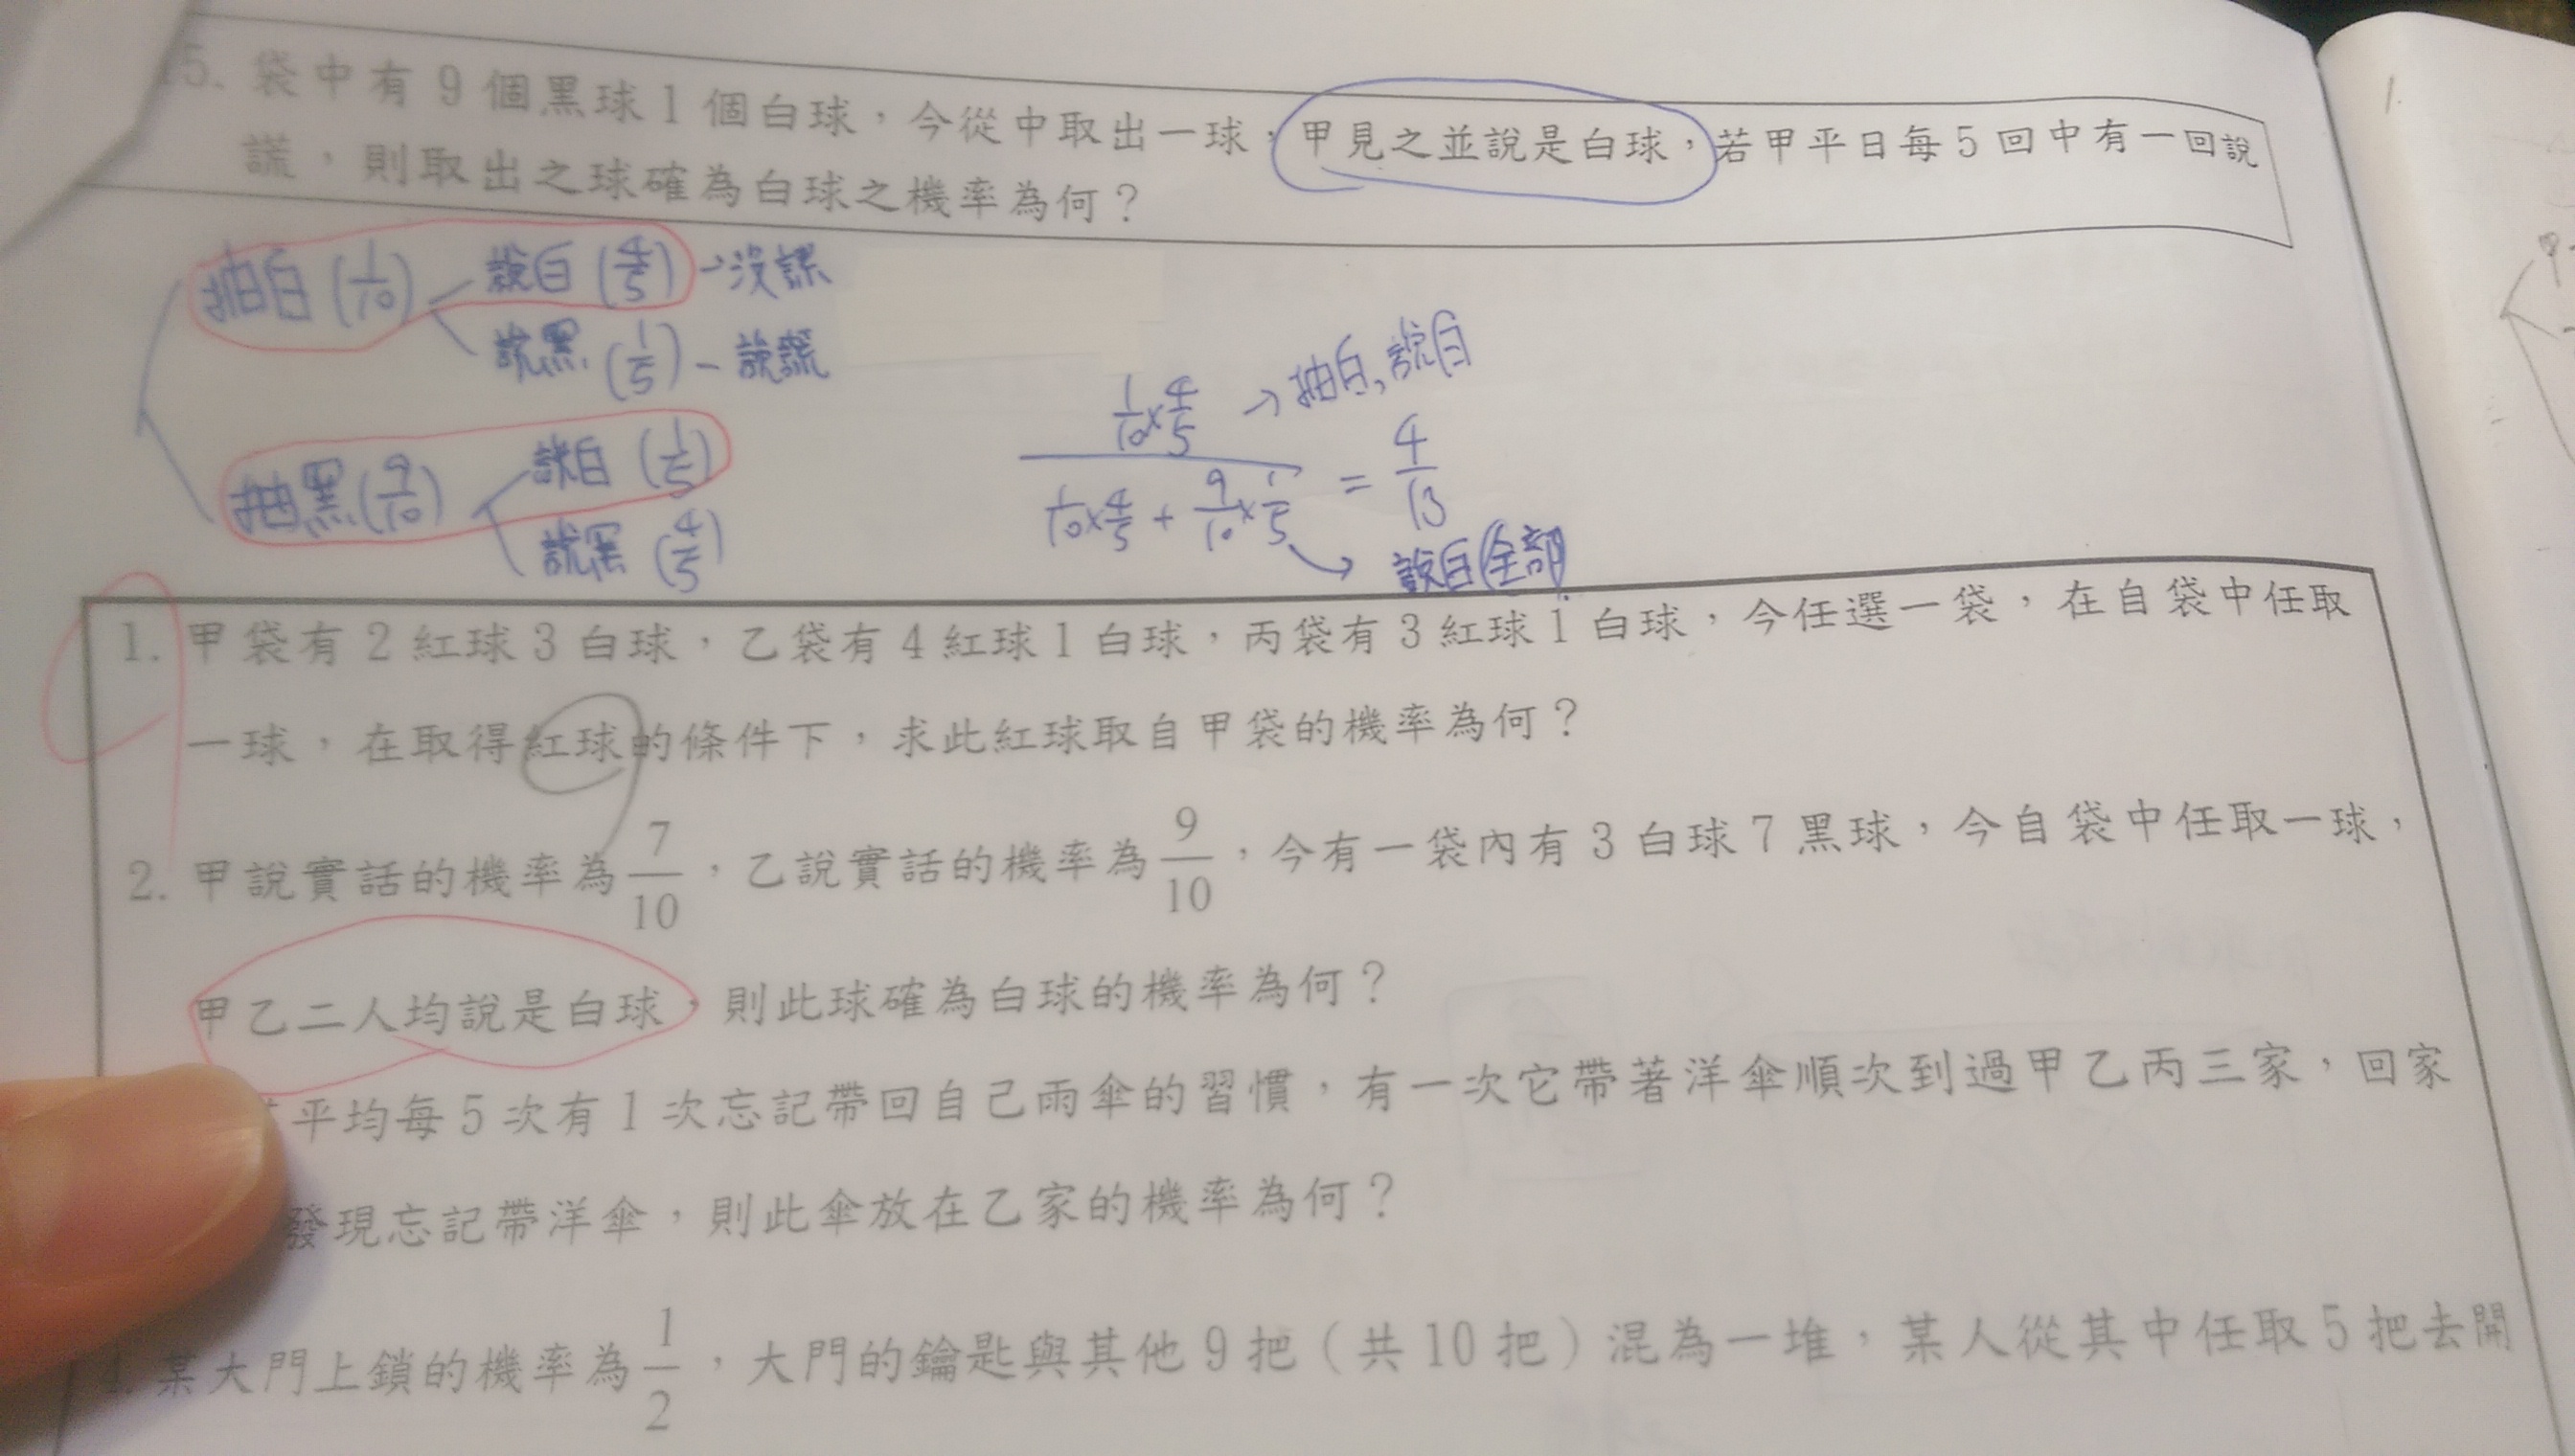 5. 袋中有9個黑球1個白球，今從中取出一球，甲見之並說是白球，若甲平日每5回中有一回說
謊，則取出之球確為白球之機率為何？
抽白(1/10) 說白(4/5)→沒謊
說黑(1/5)－說謊
抽黑(9/10) 說白(1/5)
說黑(4/5)
1/10×4/5 →抽白,說白
1/10×4/5 + 9/10×1/5 = 4/13
→ 說白(全部)
1. 甲袋有2紅球3白球，乙袋有4紅球1白球，丙袋有3紅球1白球，今任選一袋，在自袋中任取
一球，在取得紅球的條件下，求此紅球取自甲袋的機率為何？
2. 甲說實話的機率為7/10，乙說實話的機率為9/10，今有一袋內有3白球7黑球，今自袋中任取一球，
甲乙二人均說是白球，則此球確為白球的機率為何？
平均每5次有1次忘記帶回自己雨傘的習慣，有一次它帶著洋傘順次到過甲乙丙三家，回家
發現忘記帶洋傘，則此傘放在乙家的機率為何？
某大門上鎖的機率為1/2，大門的鑰匙與其他9把（共10把）混為一堆，某人從其中任取5把去開
1.